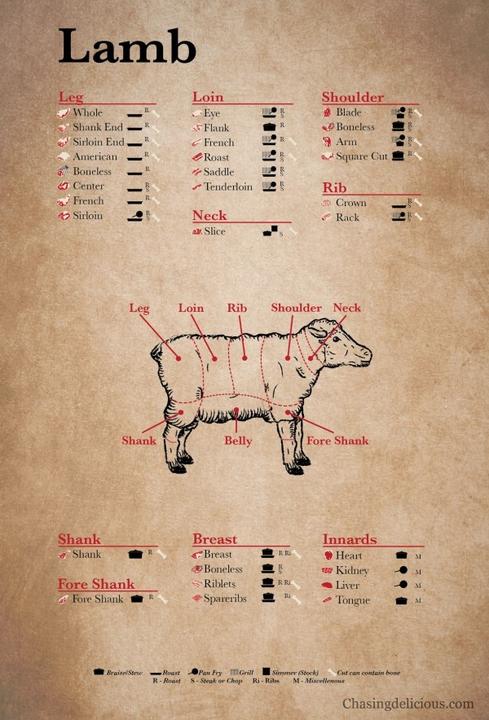 Lamb
Leg
Whole R
Shank End R
Sirloin End R
American R
Boneless R
Center R S
French R
Sirloin R S
Loin
Eye R S
Flank R
French R S
Roast R S
Saddle R S
Tenderloin R S
Neck
Slice S
Shoulder
Blade R S
Boneless R
Arm R S
Square Cut R
Rib
Crown R
Rack R S
Leg Loin Rib Shoulder Neck
Shank Belly Fore Shank
Shank
Shank R
Fore Shank
Fore Shank R
Breast
Breast R Ri
Boneless R S
Riblets R Ri
Spareribs Ri
Innards
Heart M
Kidney M
Liver M
Tongue M
Braise/Stew Roast Pan Fry Grill Simmer (Stock) Cut can contain bone
R - Roast S - Steak or Chop Ri - Ribs M - Miscellenous
Chasingdelicious.com